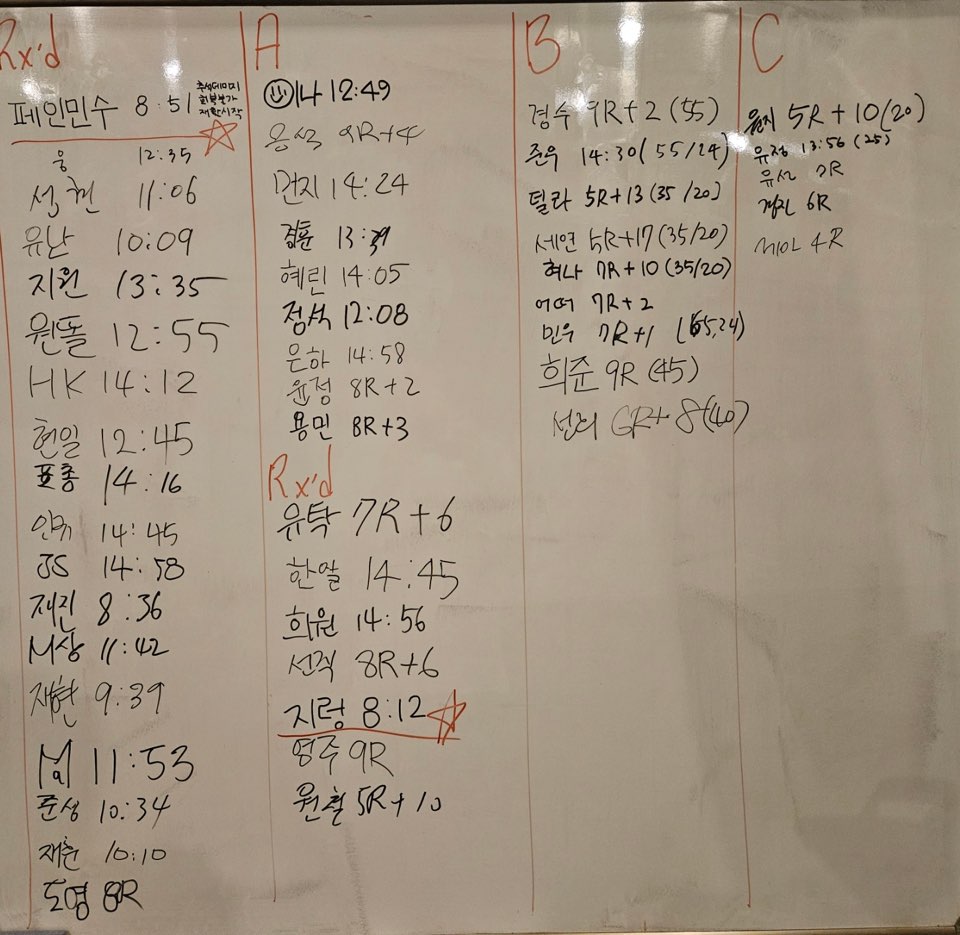 Rx'd
페인민수 8:51
웅 12:35
석현 11:06
유난 10:09
지원 13:35
원똘 12:55
HK 14:12
현일 12:45
표총 14:16
14:45
JS 14:58
재진 8:36
M상 11:42
재현 9:39
11:53
준성 10:34
재훈 10:10
도영 8R
A
이나 12:49
용석 9R+4
민지 14:24
혜린 14:05
정석 12:08
은하 14:58
윤정 8R+2
용민 8R+3
Rx'd
유탁 7R+6
한알 14:45
희원 14:56
선직 8R+6
지렁 8:12
영주 9R
원철 5R+10
B
경수 9R+2 (55)
준우 14:30 (55/24)
틸라 5R+13 (35/20)
세연 5R+17 (35/20)
허나 7R+10 (35/20)
7R+2
민우 7R+1
희준 9R (45)
6R+8 (40)
C
5R+10 (20)
유정 13:56 (25)
유선 7R
6R
4R